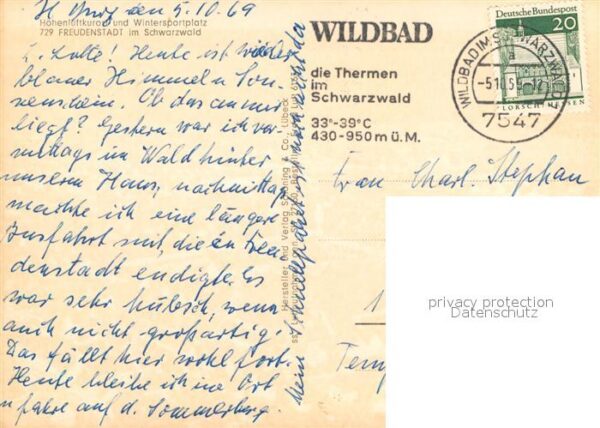 den 5.10.69
Höhenluftkurort und Wintersportplatz
729 FREUDENSTADT im Schwarzwald
L. Lotte! Heute ist wieder
blauer Himmel u. Son-
nenschein. Ob das an mir
liegt? Gestern war ich vor-
mittags im Wald hinter
unserem Haus, nachmittag
machte ich eine längere
Ausfahrt mit, die in Freu-
denstadt endigte. Es
war sehr hübsch, wenn
auch nicht großartig.
Das fällt hier wohl fort.
Heute bleibe ich im Ort
u fahre auf d. Sommerberg.
Mein
Hersteller und Verlag Schöning & Co Lübeck
WILDBAD
die Thermen
im
Schwarzwald
33°-39°C
430-950m ü. M.
WILDBAD IM SCHWARZWALD
a
-5.10.69-12
7547
Deutsche Bundespost
20
LORSCH HESSEN
Frau Charl. Stephan
1
Temp
privacy protection
Datenschutz